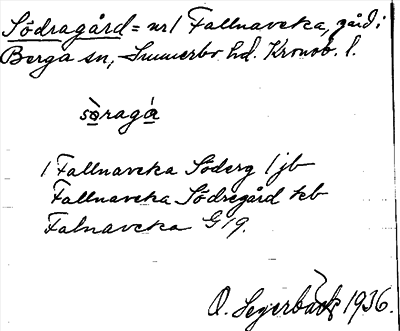 Södragård = nr 1 Fallnaveka, gård i
Berga sn, Sunnerbo hd. Kronob. l.
sö̀ragá
1 Fallnaveka Söderg 1 jb
Fallnaveka Södregård kb
Falnaveka G 19.
O. Segerbäck 1936.